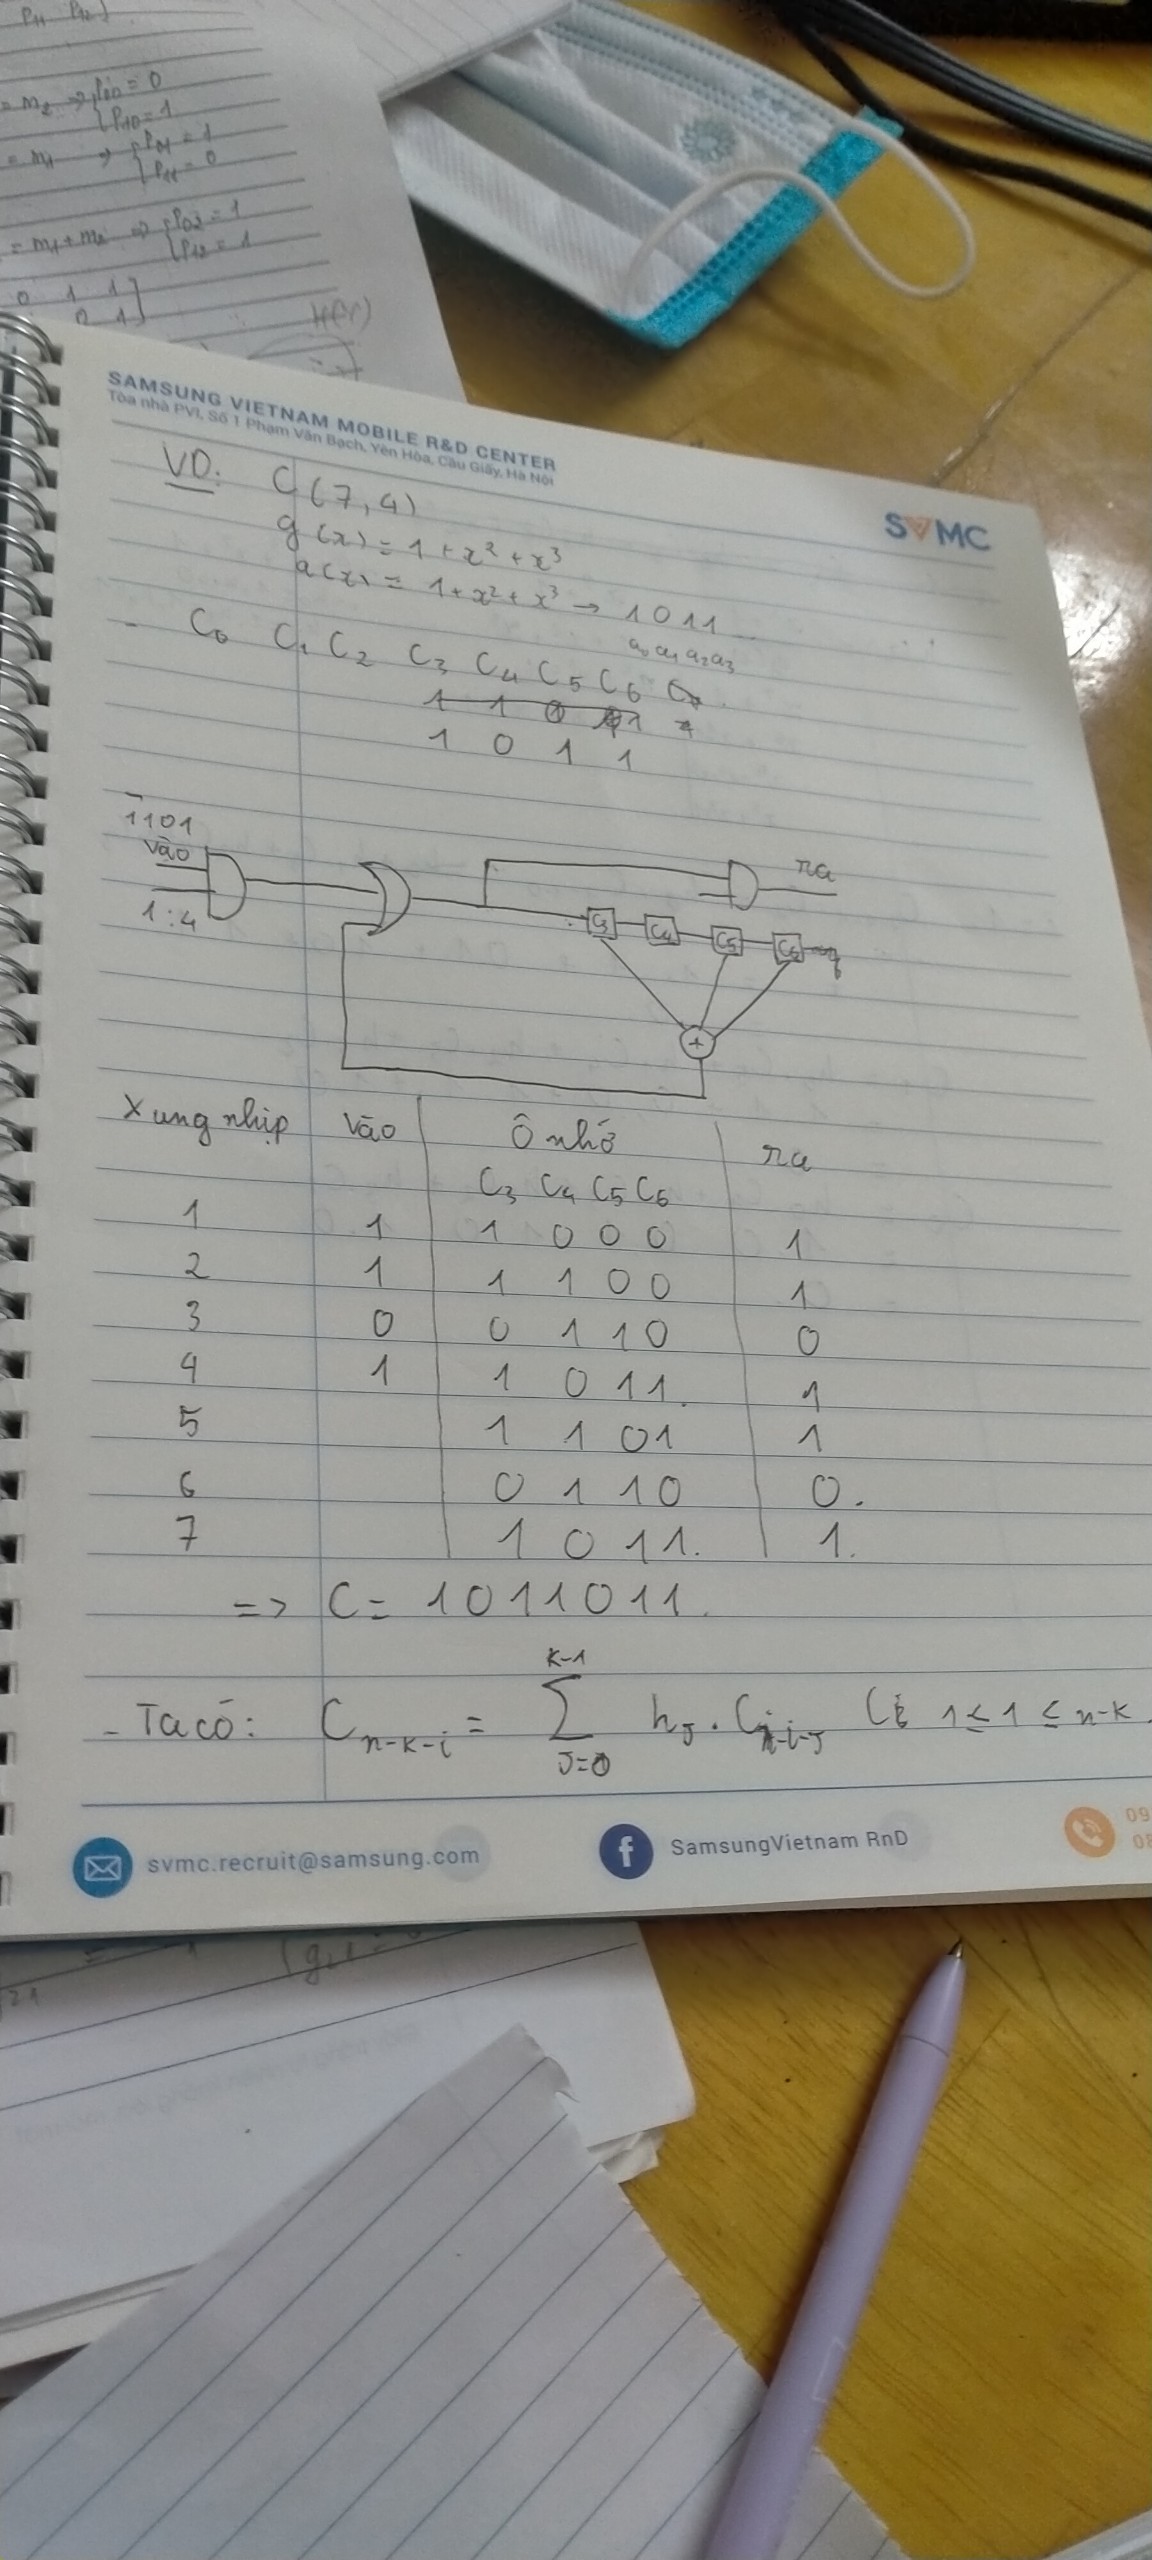 P11 P12)
= m2 => {P00 = 0
{P10 = 1
= m1 => {P01 = 1
{P11 = 0
= m1 + m2 => {P02 = 1
{P12 = 1
0 1 1]
0 1]
SAMSUNG VIETNAM MOBILE R&D CENTER
Tòa nhà PVI, Số 1 Phạm Văn Bạch, Yên Hòa, Cầu Giấy, Hà Nội
SVMC
VD: C(7,4)
g(x) = 1 + x² + x³
a(x) = 1 + x² + x³ → 1011
a0 a1 a2 a3
- C0 C1 C2 C3 C4 C5 C6
1 1 0 1
1 0 1 1
1101
vào
1:4
ra
C3 C4 C5 C6
+
Xung nhịp vào Ô nhớ ra
C3 C4 C5 C6
1 1 1 0 0 0 1
2 1 1 1 0 0 1
3 0 0 1 1 0 0
4 1 1 0 1 1. 1
5 1 1 0 1 1
6 0 1 1 0 0.
7 1 0 1 1. 1.
=> C = 1011011.
- Ta có: Cn-k-i = Σ k-1 J=0 hJ . Cn-i-J 1 ≤ 1 ≤ n-k.
svmc.recruit@samsung.com
f SamsungVietnam RnD
09
08